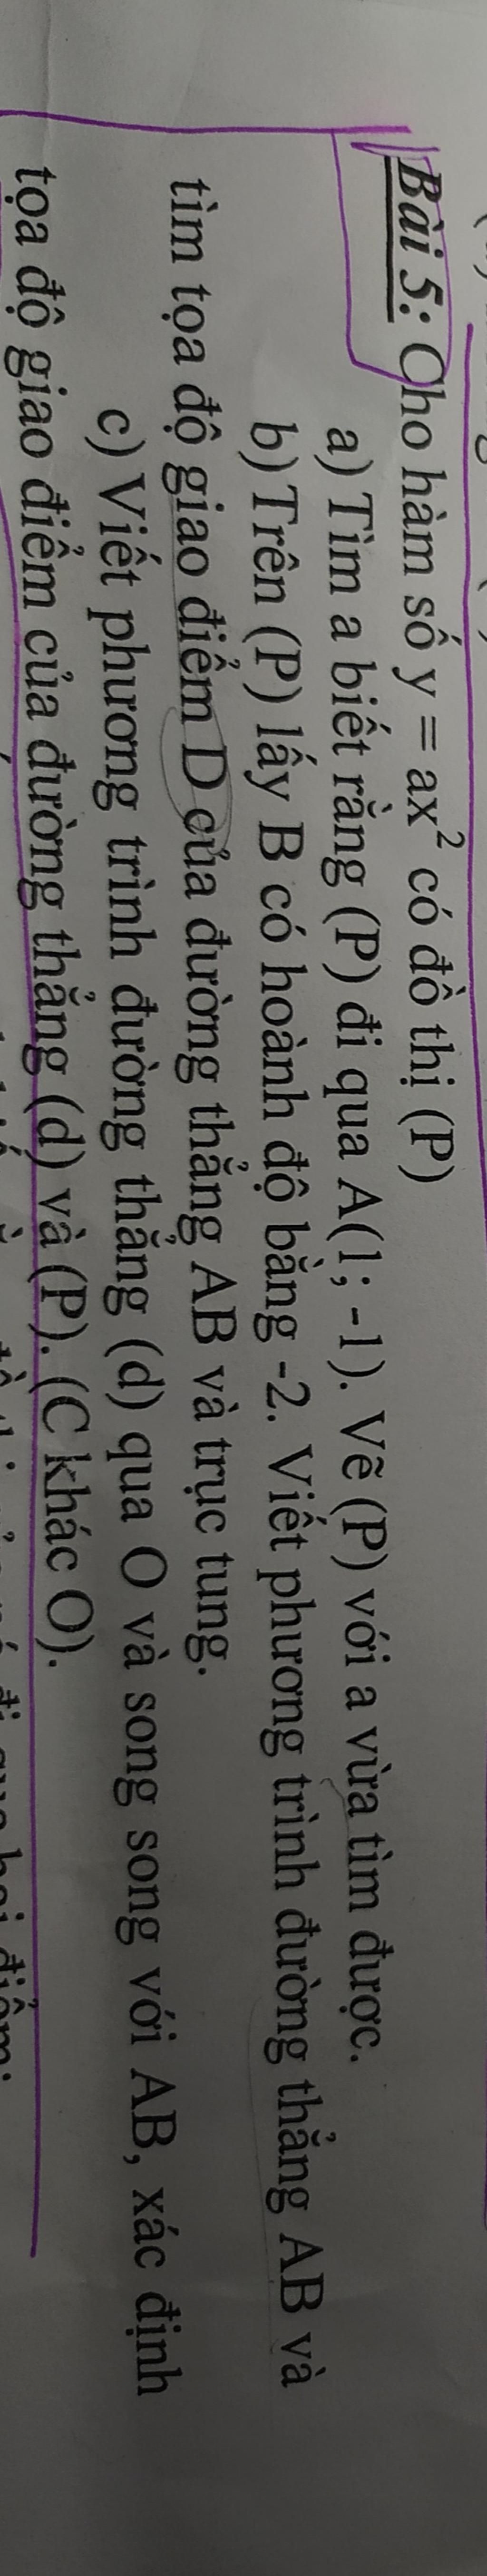 Bài 5: Cho hàm số y = ax² có đồ thị (P)
a) Tìm a biết rằng (P) đi qua A(1; -1). Vẽ (P) với a vừa tìm được.
b) Trên (P) lấy B có hoành độ bằng -2. Viết phương trình đường thẳng AB và
tìm tọa độ giao điểm D của đường thẳng AB và trục tung.
c) Viết phương trình đường thẳng (d) qua O và song song với AB, xác định
tọa độ giao điểm của đường thẳng (d) và (P). (C khác O).